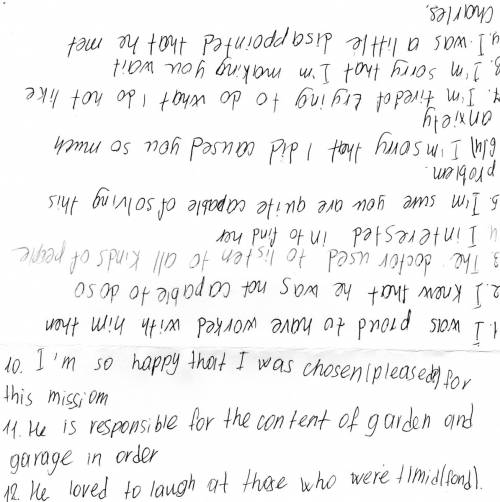 1. I was proud to have worked with him then
2. I knew that he was not capable to do so
3. The doctor used to listen to all kinds of people
4 I interested in to find her
5 I'm sure you are quite capable of solving this
problem.
I'm sorry that I did caused you so much
anxiety
7. I'm tired of trying to do what I do not like
8. I'm sorry that I'm making you wait
9. I was a little disappointed that he met
Charles.
10. I'm so happy that I was chosen(pleased) for
this mission
11. He is responsible for the content of garden and
garage in order
12. He loved to laugh at those who were timid(fond).